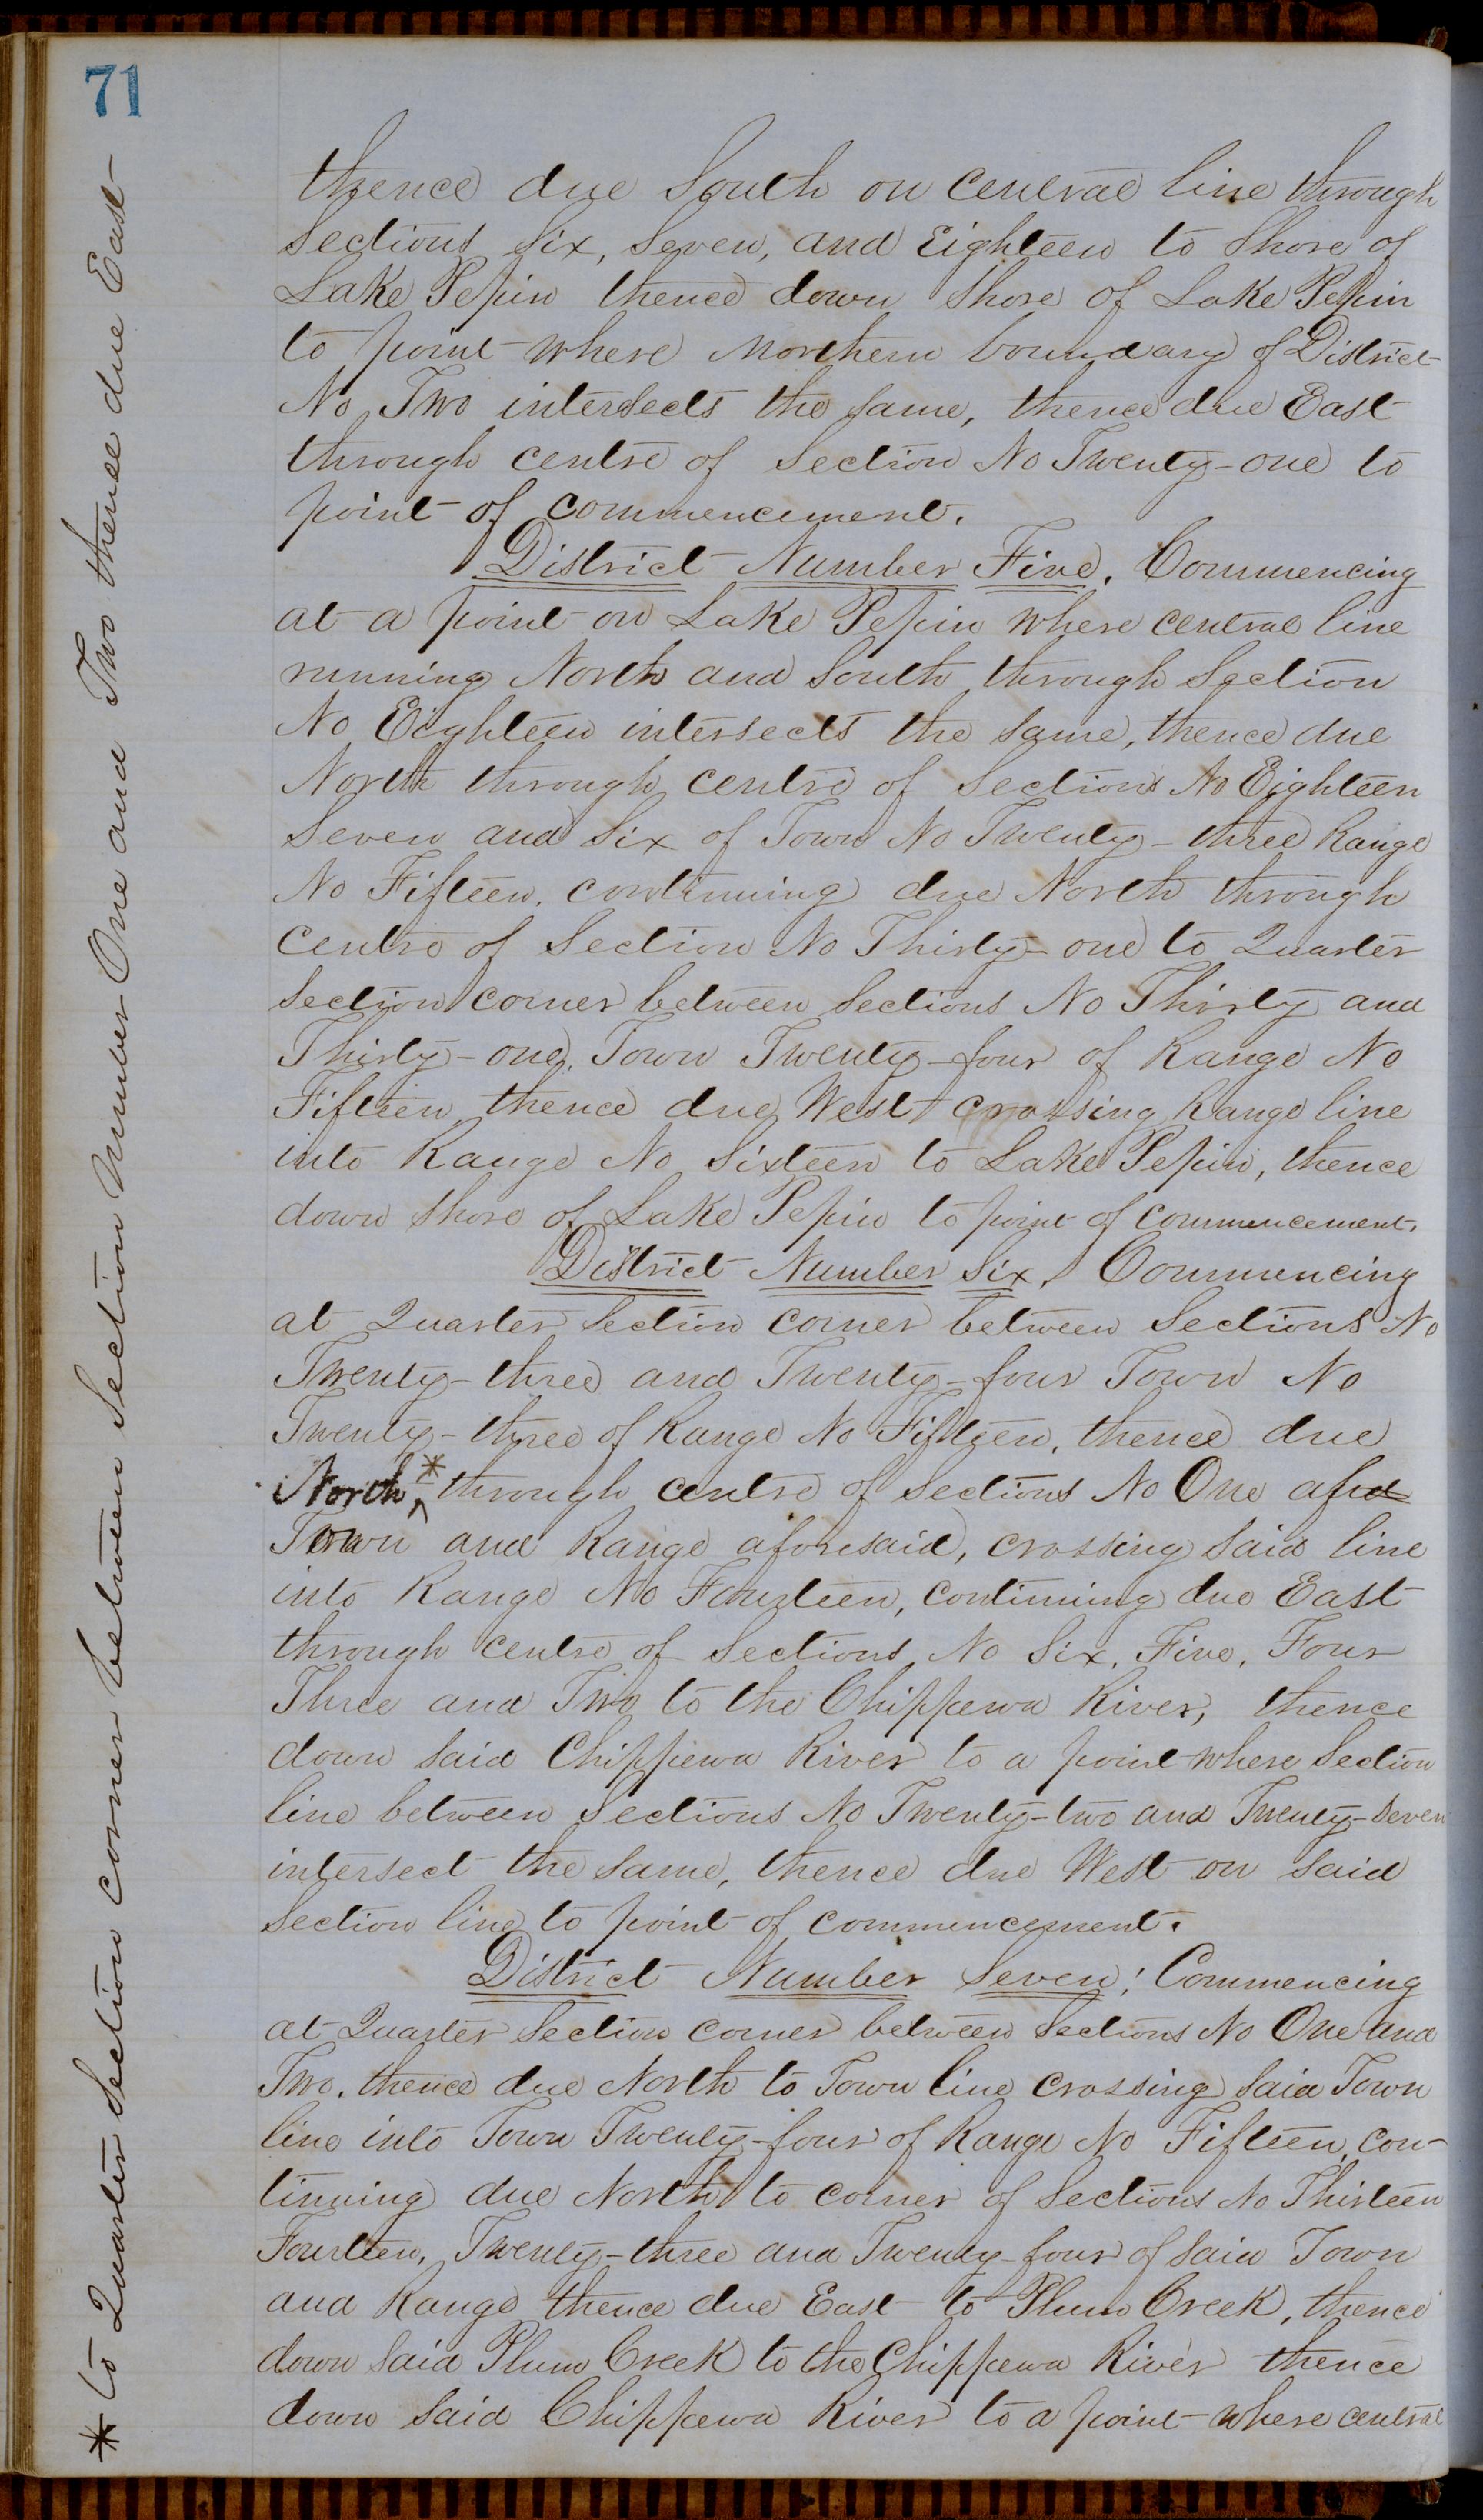 71
thence due South on central line through
Sections Six, Seven, and Eighteen to Shore of
Lake Pepin thence down Shore of Lake Pepin
to point where Northern boundary of District
No Two intersects the same, thence due East
through centre of Section No Twenty-one to
point of commencement.
District Number Five. Commencing
at a point on Lake Pepin where central line
running North and South through Section
No Eighteen intersects the same, thence due
North through centre of Sections No Eighteen
Seven and Six of Town No Twenty-three Range
No Fifteen, continuing due North through
centre of Section No Thirty-one to Quarter
Section corner between Sections No Thirty and
Thirty-one, Town Twenty-four of Range No
Fifteen thence due West crossing Range line
into Range No Sixteen to Lake Pepin, thence
down Shore of Lake Pepin to point of commencement.
District Number Six, Commencing
at Quarter Section corner between Sections No
Twenty-three and Twenty-four Town No
Twenty-three of Range No Fifteen, thence due
North,* through centre of Sections No One and
Town and Range aforesaid, crossing said line
into Range No Fourteen, continuing due East
through centre of Sections No Six, Five, Four
Three and Two to the Chippewa River, thence
down said Chippewa River to a point where Section
line between Sections No Twenty-two and Twenty-seven
intersect the same, thence due West on said
Section line to point of commencement.
District Number Seven; Commencing
at Quarter Section corner between Sections No One and
Two, thence due North to Town line crossing said Town
line into Town Twenty-four of Range No Fifteen, con-
tinuing due North to corner of Sections No Thirteen
Fourteen, Twenty-three and Twenty-four of said Town
and Range thence due East to Plum Creek, thence
down said Plum Creek to the Chippewa River thence
down said Chippewa River to a point where central
* to Quarter Section corner between Section Number One and Two thense due East